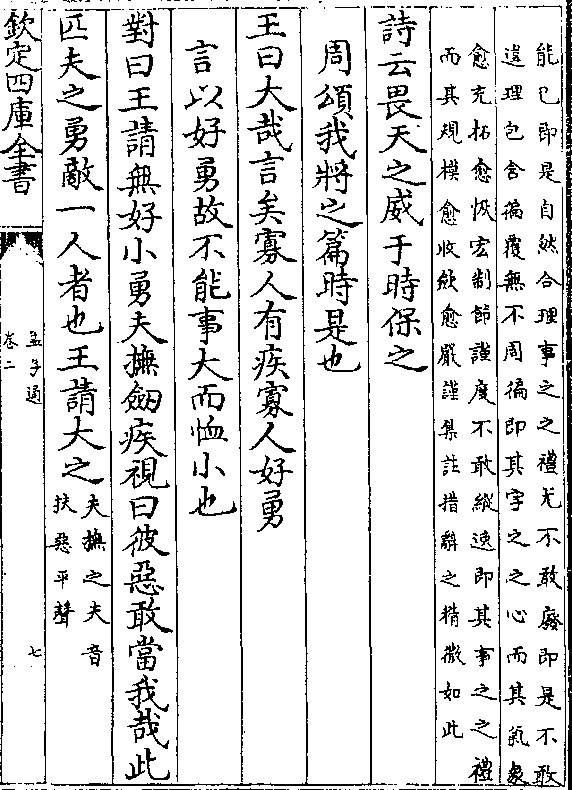 能已即是自然合理事之之禮尤不敢廢即是不敢
違理包含徧覆無不周徧即其字之之心而其氣象
愈充拓愈恢宏制節謹度不敢縱逸即其事之之禮
而其規模愈收斂愈嚴謹集註措辭之精微如此
詩云畏天之威于時保之
周頌我將之篇時是也
王曰大哉言矣寡人有疾寡人好勇
言以好勇故不能事大而恤小也
對曰王請無好小勇夫撫劒疾視曰彼惡敢當我哉此
匹夫之勇敵一人者也王請大之
夫撫之夫音
扶惡平聲
欽定四庫全書
孟子通
卷二
七